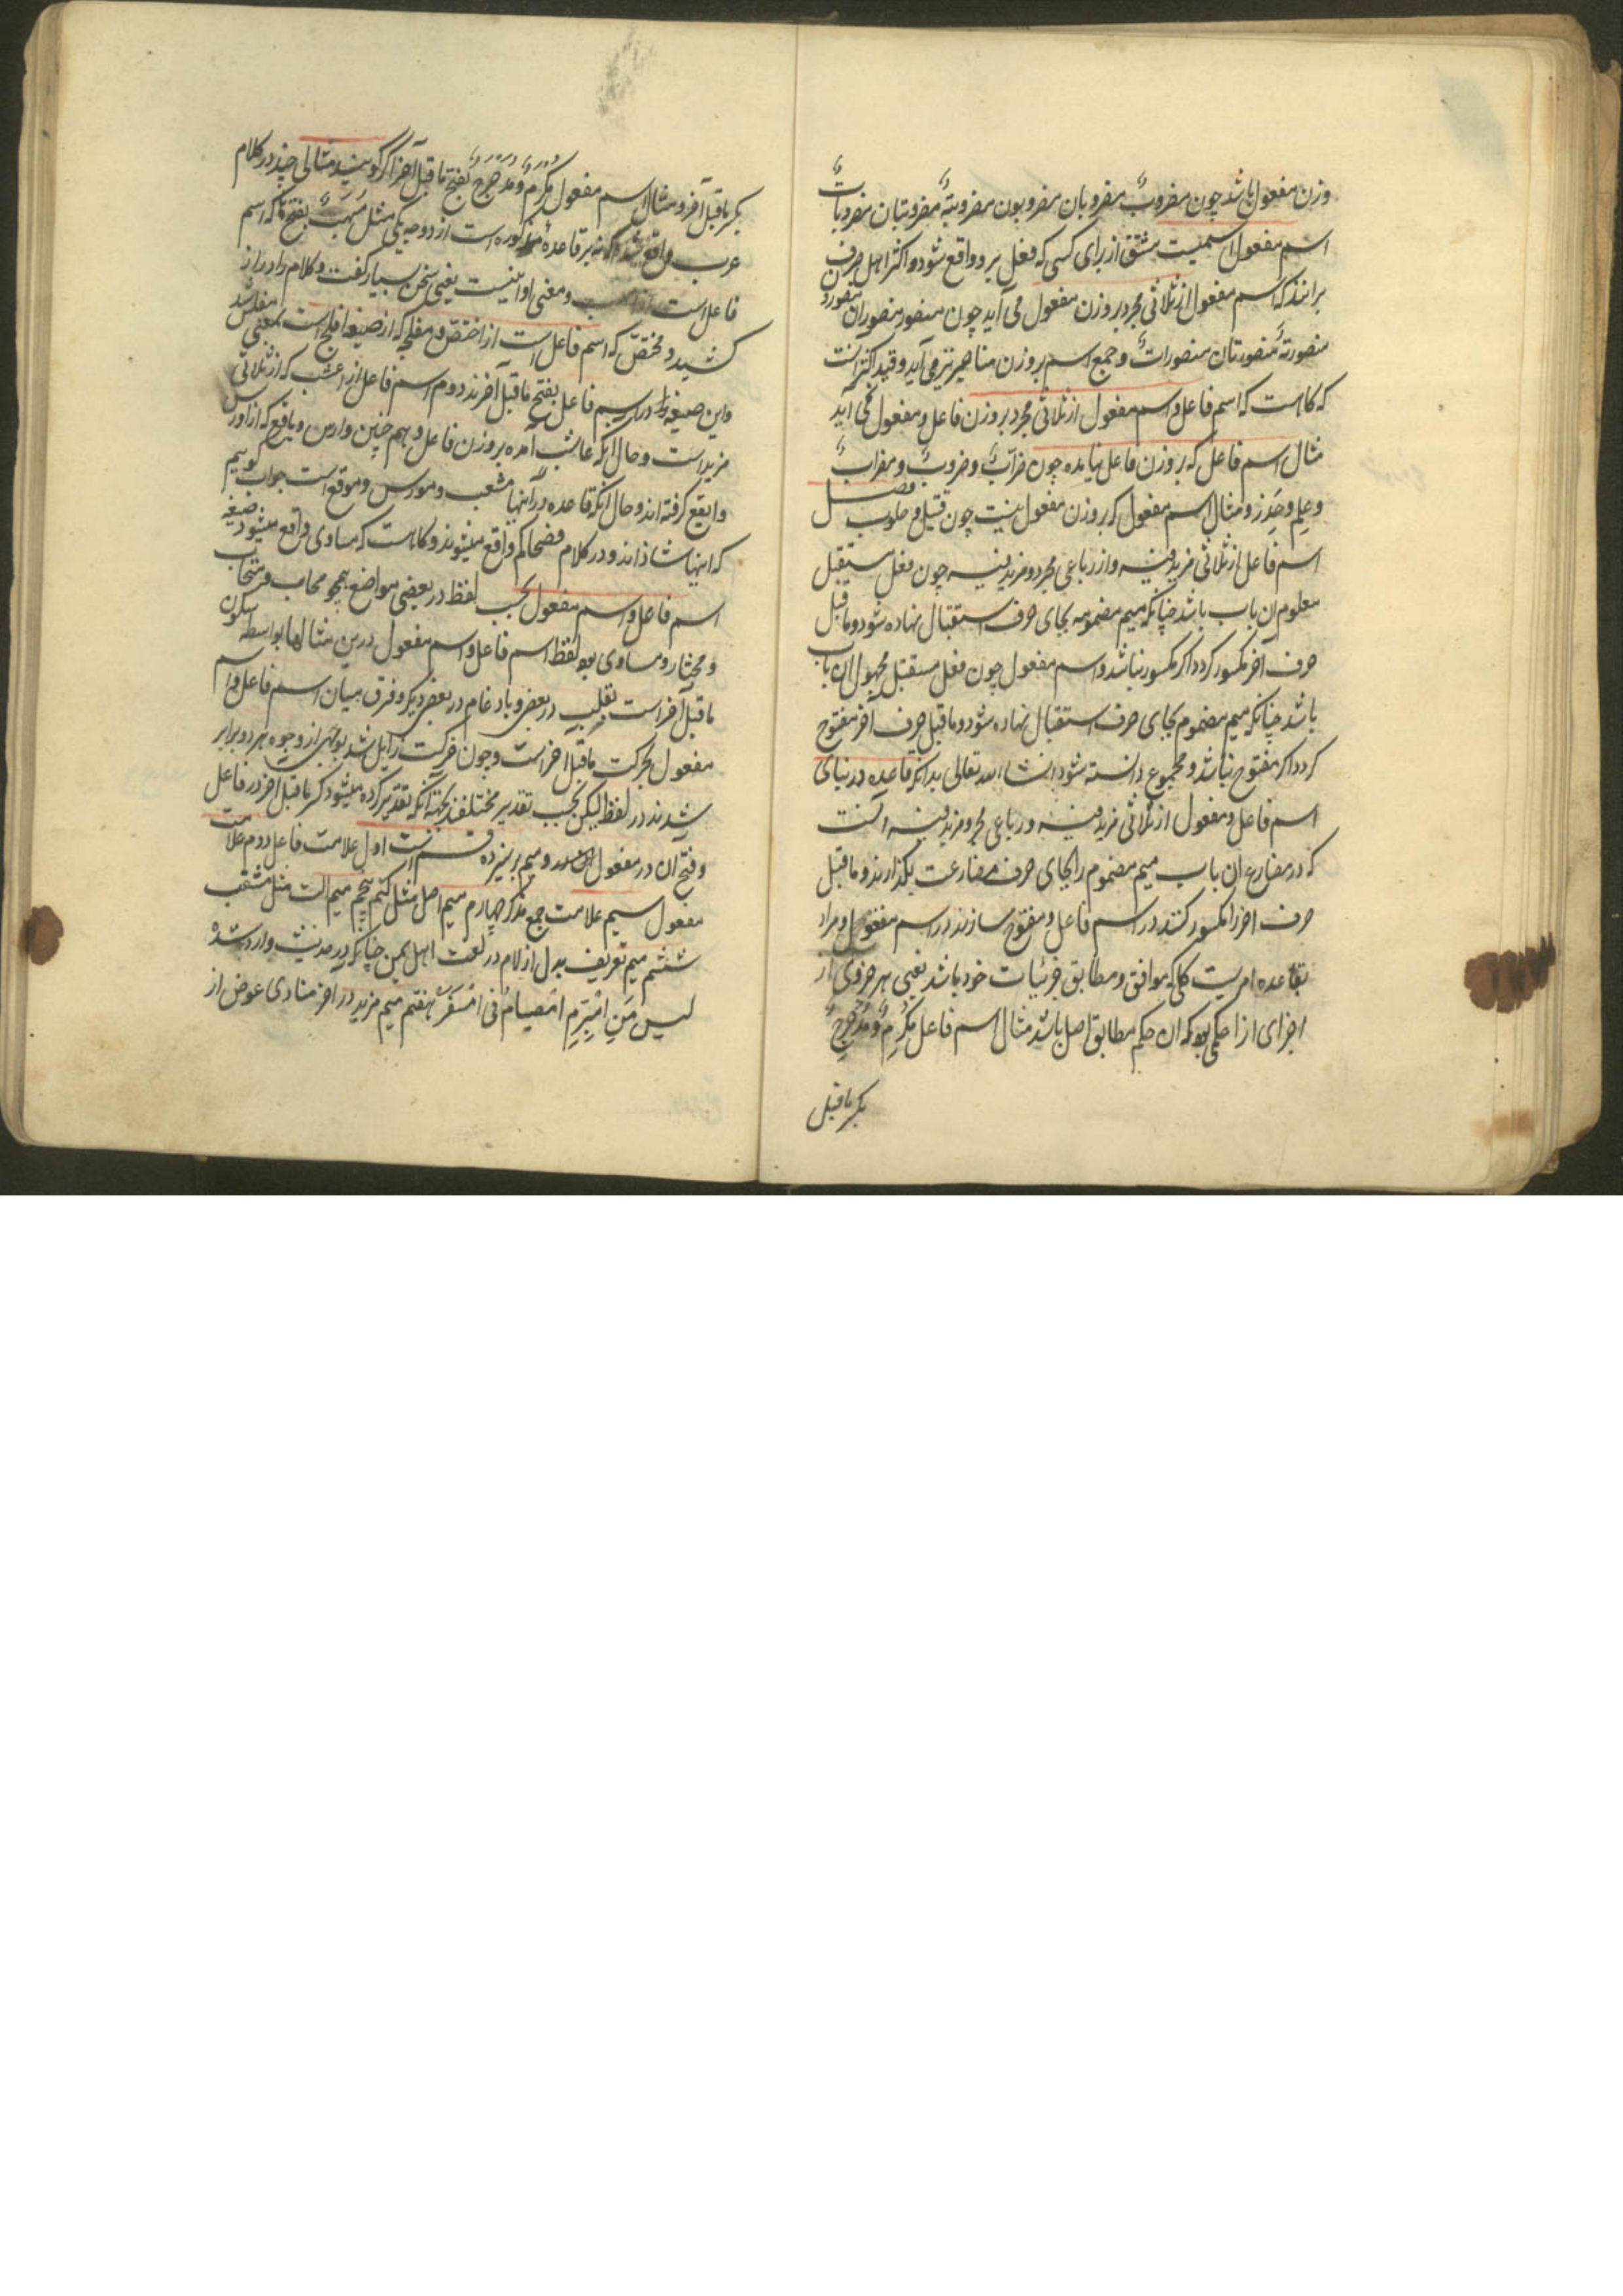 وزن مفعول باشد چون مضروبٌ مضروبان مضروبون مضروبةٌ مضروبتان مضروباتٌ
اسم مفعول اسمیست مشتق از برای کسی که فعل برو واقع شود و اکثر اهل صرف
برانند که اسم مفعول از ثلاثی مجرد بر وزن مفعول می آید چون منصور منصوران منصورون
منصورةٌ منصورتان منصوراتٌ و جمع اسم بر وزن مناصر نیز می آید و قید اکثر انست
که کاهست که اسم فاعل و اسم مفعول از ثلاثی مجرد بر وزن فاعل و مفعول نمی آید
مثال اسم فاعل که بر وزن فاعل نیامده چون ضرّابٌ و ضروبٌ و مضرابٌ
و علِم و حَذِر و مثال اسم مفعول که بر وزن مفعول نیست چون قتیل و حلوب فصل
اسم فاعل از ثلاثی مزید فیه و از رباعی مجرد و مزید فیه چون فعل مستقبل
معلوم ان باب باشد چنانکه میم مضمومه بجای حرف استقبال نهاده شود و ما قبل
حرف آخر مکسور کردد اکر مکسور نباشد و اسم مفعول چون فعل مستقبل مجهول ان باب
باشد چنانکه میم مضموم بجای حرف استقبال نهاده شود و ما قبل حرف آخر مفتوح
کردد اکر مفتوح نباشد و مجموع دانسته شود انشاء الله تعالی بدانکه قاعده در بنای
اسم فاعل و مفعول از ثلاثی مزید فیه و رباعی مجرد و مزید فیه آنست
که در مضارع ان باب میم مضموم را بجای حرف مضارعت بکذارند و ما قبل
حرف اخر را مکسور کنند در اسم فاعل و مفتوح سازند در اسم مفعول و مراد
بقاعده امریست کلی که موافق و مطابق جزئیات خود باشد یعنی هر جزوی از
اجزای او را حکمی بود که ان حکم مطابق اصل باشد مثال اسم فاعل مُکْرِمٌ و مُدَحْرِجٌ
بکسر ما قبل
بکسر ما قبل آخر و مثال اسم مفعول مُکْرَمٌ و مُدَحْرَجٌ بفتح ما قبل آخر اکر کویند مثالی چند در کلام
عرب واقع شد که نه بر قاعده مذکوره است از دو وجه یکی مثل مُسْهَبٌ بفتح ها که اسم
فاعل است از اسهب و معنی او اینست یعنی سخن بسیار کفت و کلام را دراز
کشید و مختصّ که اسم فاعل است از اختصّ و مفلج که از صیغه افلج است بمعنی مفلس شد
و این صیغها در اسم فاعل بفتح ما قبل آخرند دوم اسم فاعل از اعشب که از ثلاثی
مزید است و حال آنکه عاشب آمده بر وزن فاعل و هم چنین وارس و یافع که از اورس
و ایفع کرفته اند و حال انکه قاعده در آنها معشب و مورس و موفع است جواب کوییم
که اینها شاذ اند و در کلام فصحا کم واقع میشوند و کاهست که مساوی واقع میشود صیغه
اسم فاعل و اسم مفعول بحسب لفظ در بعضی مواضع همچو محاب و متحاب
و مختار و مساوی بودن لفظ اسم فاعل و اسم مفعول درین مثالها بواسطه سکون
ما قبل آخر است بقلب در بعضی و بادغام در بعضی دیکر و فرق میان اسم فاعل و اسم
مفعول بحرکت ما قبل اخر است و چون حرکت زایل شد بوجهی از وجوه هر دو برابر
شدند در لفظ لیکن بحسب تقدیر مختلفند بجهة آنکه تقدیر کرده میشود کسر ما قبل اخر در فاعل
و فتح آن در مفعول و میم بر سیزده قسم است اول علامت فاعل دوم علامت
مفعول سیم علامت جمع مذکر چهارم میم اصل مثل کتم پنجم میم الت مثل مثقب
ششم میم تعریف بدل از لام در لغت اهل یمن چنانکه در حدیث وارد شده
لیس مِن امْبِرِّ امْصیامُ فی امْسَفَر هفتم میم مزید در اخر منادی عوض از